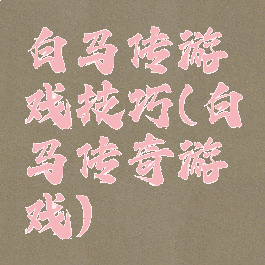 白马传游
戏技巧(白
马传奇游
戏)